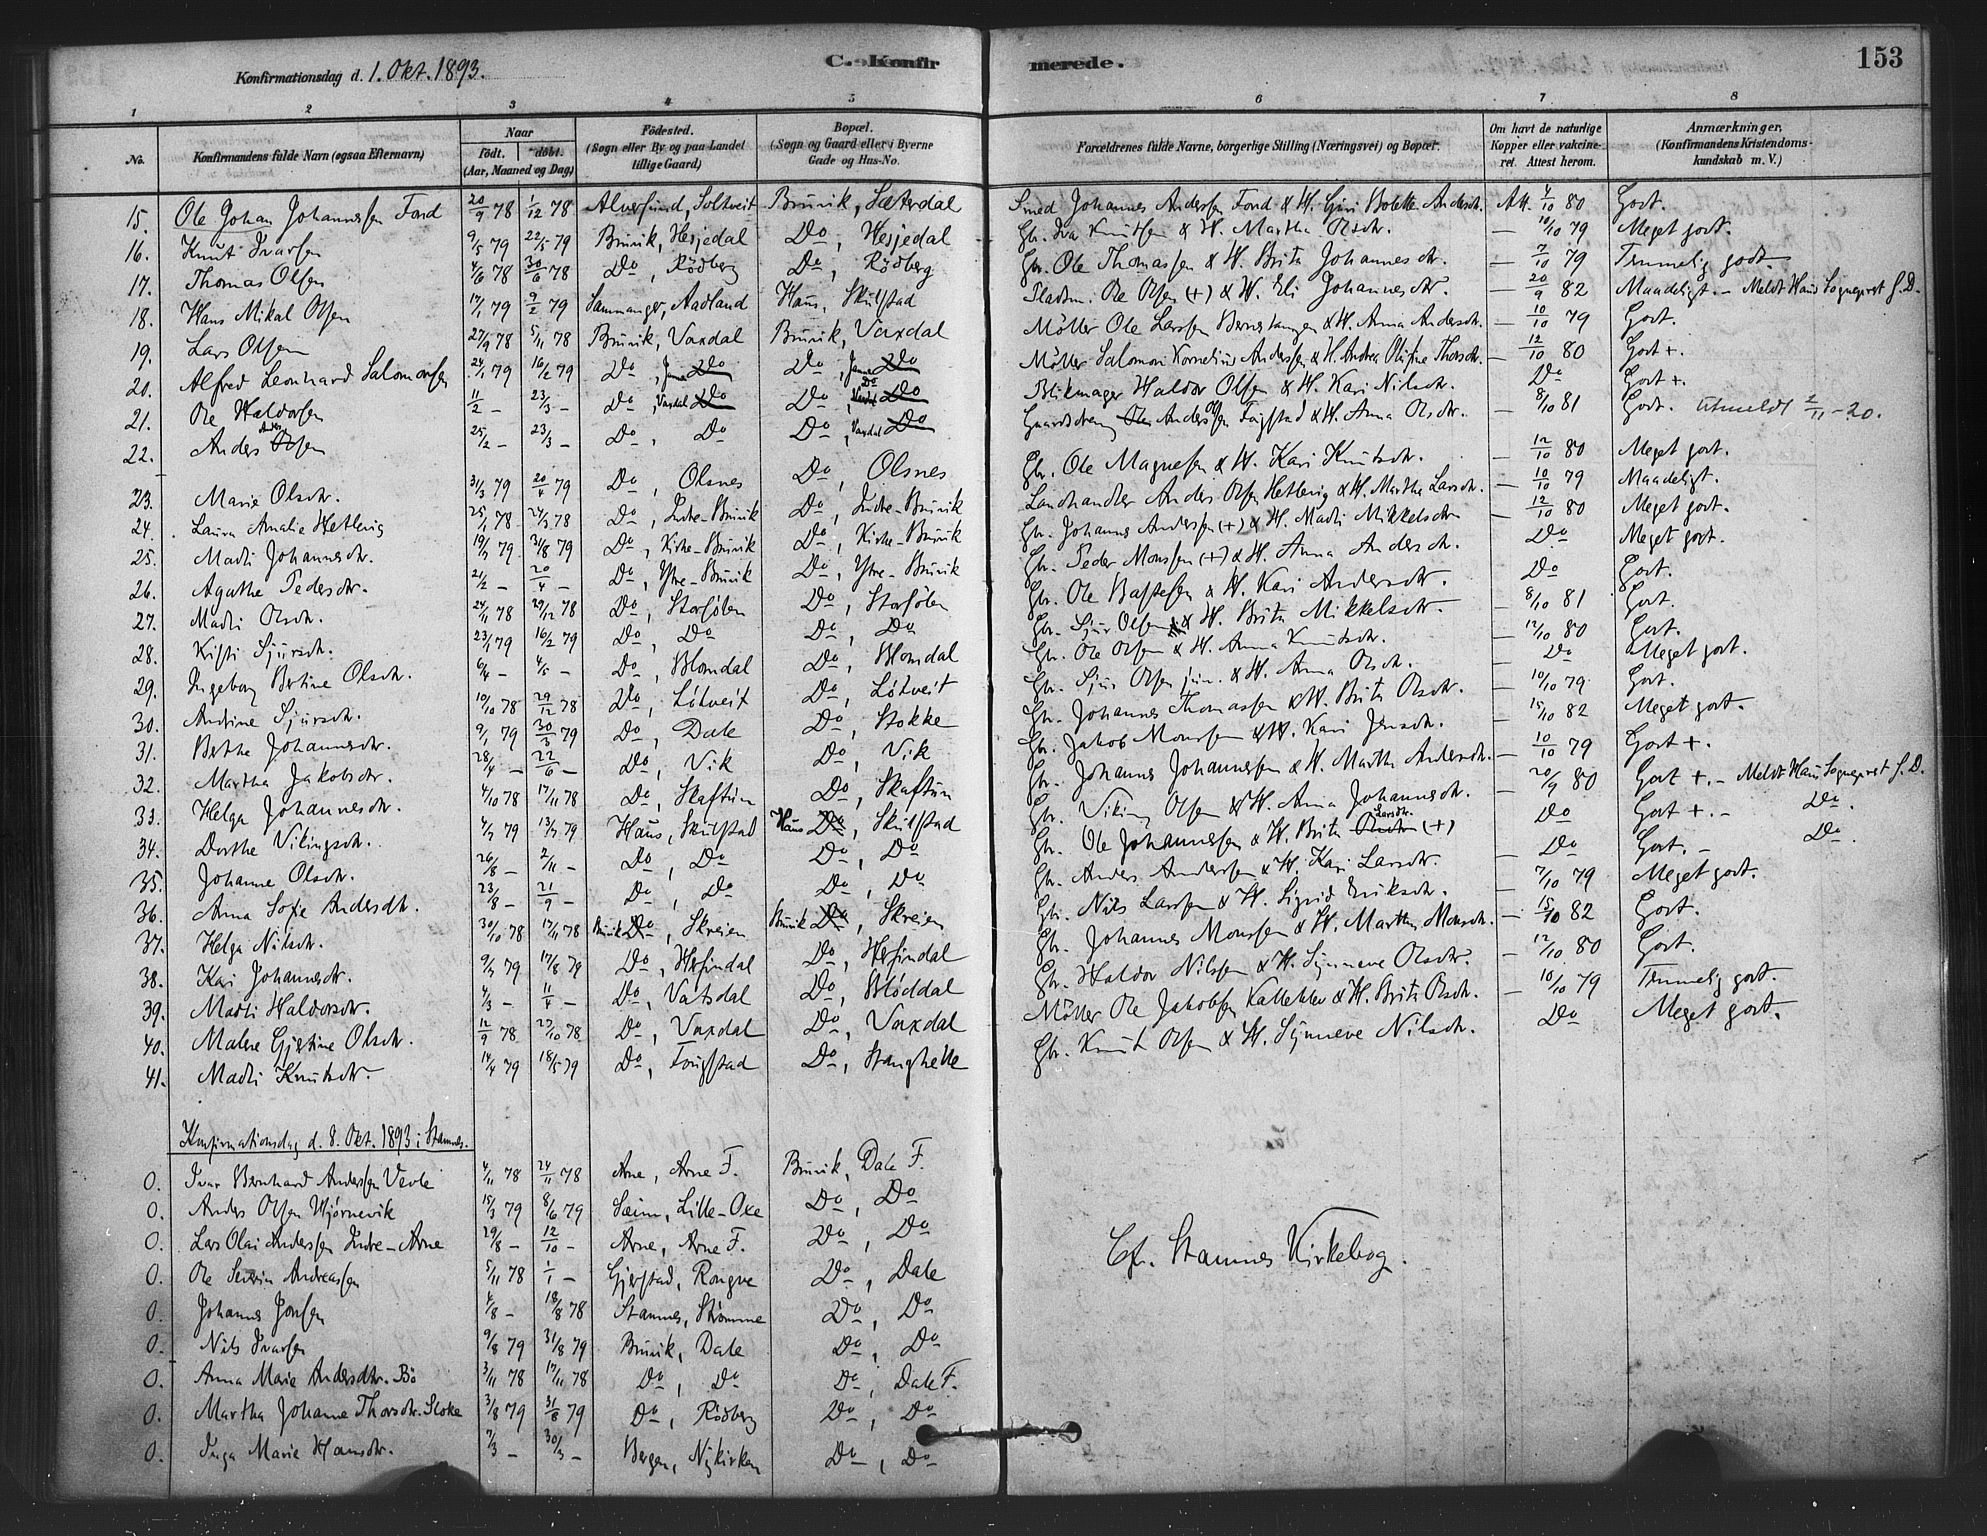 Konfirmationsdag d. 1. Okt. 1893.
C. Konfirmerede.
153
1 2 3 4 5 6 7 8
No.
Konfirmandens fulde Navn (ogsaa Efternavn)
Naar
født. døbt.
(Aar, Maaned og Dag)
Fødested.
(Sogn eller By og paa Landet tillige Gaard)
Bopæl.
(Sogn og Gaard eller i Byerne Gade og Hus-No.
Forældrenes fulde Navne, borgerlige Stilling (Næringsvei) og Bopæl.
Om havt de naturlige Kopper eller vakcineret. Attest herom.
Anmærkninger,
(Konfirmandens Kristendomskundskab m. V.)
15. Ole Johan Johannessen Fond 20/9 78 1/12 78 Alversund, Soltveit Bruvik, Sætrdal Smed Johannes Anderssen Fond & H. Guri Bolette Andersdr. Att. 4/10 80 Godt.
16. Knut Ivarsen 9/5 79 22/5 79 Bruvik, Hesjedal Do, Hesjedal Gbr. Iva Knutsen & H. Martha Olsdr. — 10/10 79 Meget godt.
17. Thomas Olsen 4/6 78 30/6 78 Do, Rødberg Do, Rødberg Gbr. Ole Thomassen & H. Brita Johannesdr. — 7/10 79 Temmelig godt.
18. Hans Mikal Olsen 17/1 79 9/2 79 Samnanger, Aadland Haus, Skulstad Pladsm. Ole Olsen (+) & H. Eli Johannesdr. — 20/9 82 Maadeligt. - Meldt Haus Sognepræst S.D.
19. Lars Olsen 27/9 78 5/11 78 Bruvik, Vaxdal Bruvik, Vaxdal Møller Ole Larssen Bernestangen & H. Anna Andersdr. — 10/10 79 Godt.
20. Alfred Leonhard Salomonsen 24/1 79 16/2 79 Do, Do Do, Do Møller Salomon Kornelius Anderssen & H. Andrea Olufine Thorsdr. — 12/10 80 Godt +.
21. Ole Haldorsen 11/2 — 23/3 — Do, Vaxdal Do Do, Do Blikmager Haldor Olsen & H. Kari Nilsdr. Do Godt +.
22. Anders Andersen Olsen 25/2 — 23/3 — Do, Do Do, Vaxdal Do Gaardsdreng Ole Anders Olsen Fugstad & H. Anna Olsdr. — 8/10 81 Godt. Utmeldt 2/11 - 20.
23. Marie Olsdtr. 31/3 79 20/4 79 Do, Olsnes Do, Olsnes Gbr. Ole Magnesen & H. Kari Knutsdr. — 12/10 80 Meget godt.
24. Laura Amalie Hetlevig 25/1 78 24/3 78 Do, Indre-Bruvik Do, Indre-Bruvik Landhandler Anders Olsen Hetlevig & H. Martha Larsdr. — 10/10 79 Maadeligt.
25. Madli Johannesdtr. 19/7 79 31/8 79 Do, Kirke-Bruvik Do, Kirke-Bruvik Gbr. Johannes Anderssen (+) & H. Madli Mikkelsdtr — 12/10 80 Meget godt.
26. Agathe Pedersdtr. 21/2 — 20/4 — Do, Ytre-Bruvik Do, Ytre-Bruvik Gbr. Peder Monssen (+) & H. Anna Andersdr. Do Meget godt.
27. Madli Olsdr. 24/11 78 29/12 78 Do, Storfolen Do, Storfolen Gbr. Ole Bastesen & H. Kari Andersdtr. Do Godt.
28. Kisti Sjursdr. 23/1 79 16/2 79 Do, Do Do, Do Gbr. Sjur Olsen & H. Brita Mikkelsdtr. — 8/10 81 Godt.
29. Ingeborg Bertine Olsdtr. 6/4 — 4/5 — Do, Blomdal Do, Blomdal Gbr. Ole Olsen & H. Anna Knutsdtr. — 12/10 80 Godt.
30. Andrine Sjursdr. 10/10 78 29/12 78 Do, Løtveit Do, Løtveit Gbr. Sjur Olsen jun. & H. Anna Olsdr. — Do Meget godt.
31. Berthe Johannesdtr. 9/1 79 30/3 79 Do, Dale Do, Stokke Gbr. Johannes Thomassen & H. Brita Olsdtr. — 10/10 79 Godt.
32. Martha Jakobsdtr. 28/4 — 22/6 — Do, Vik Do, Vik Gbr. Jakob Monssen & H. Kari Jensdr. — 15/10 82 Meget godt.
33. Helga Johannesdtr. 4/10 78 17/11 78 Do, Skaftun Do, Skaftun Gbr. Johannes Johannessen & H. Martha Andersdr. — 10/10 79 Godt +.
34. Dorthe Vikingsdr. 4/7 79 13/7 79 Haus, Skulstad Haus Do, Skulstad Gbr. Viking Olsen & H. Anna Johannesdr. — 20/9 80 Godt +. - Meldt Haus Sognepræst S.D.
35. Johanne Olsdtr. 26/8 — 2/11 — Do, Do Do, Do Gbr. Ole Johannessen & H. Brita Larsdtr. (+) Do Godt +. - Do.
36. Anna Sofie Andersdtr. 23/8 — 21/9 — Do, Do Do, Do Gbr. Anders Anderssen & H. Kari Larsdtr. — Do Godt. - Do.
37. Helga Nilsdr. 30/10 78 17/11 78 Bruvik Do, Skreien Bruvik Do, Skreien Gbr. Nils Larssen & H. Sigrid Eriksdtr. — 7/10 79 Meget godt.
38. Kari Johannesdtr. 9/7 79 17/8 79 Do, Herfindal Do, Herfindal Gbr. Johannes Monssen & H. Martha Monsdtr. — 15/10 82 Godt.
39. Madli Haldorsdtr. 4/3 — 11/4 — Do, Vatsdal Do, Bløddal Gbr. Haldor Nilssen & H. Synneve Olsdtr. — 12/10 80 Godt.
40. Malene Gjertine Olsdtr. 12/9 78 27/10 78 Do, Vaxdal Do, Vaxdal Møller Ole Jakobsen Kallekleiv & H. Brita Olsdtr. — 10/10 79 Temmelig godt.
41. Madli Knutsdtr. 14/4 79 18/5 79 Do, Fugstad Do, Stanghelle Gbr. Knut Olsen & H. Synneve Nilsdr. Do Meget godt.
Konfirmationsdag d. 8. Okt. 1893 i Stamnes.
0. Ivar Bernhard Anderssen Vevle 4/11 78 24/11 78 Arne, Arne F. Bruvik, Dale F.
0. Anders Olsen Mjørnevik 15/3 79 8/6 79 Seim, Lille-Oxe Do, Do
0. Lars Olai Anderssen Indre-Arne 29/8 — 12/10 — Arne, Arne F. Do, Do
0. Ole Severin Andreassen 5/11 78 1/1 — Gjerstad, Rongve Do, Dale
0. Johannes Jonsen 4/8 — 18/8 78 Stamnes, Strømme Do, Do
0. Nils Ivarsen 9/8 79 31/8 79 Bruvik, Dale Do, Do
0. Anna Marie Andersdtr. Bø 3/11 78 17/11 78 Do, Do Do, Dale F.
0. Martha Johanne Thorsdr. Stoke 3/8 79 31/8 79 Do, Rødberg Do, Do
0. Inga Marie Hansdtr. 7/3 — 30/3 — Bergen, Nykirken Do, Do
Cfr. Stamnes Kirkebog.